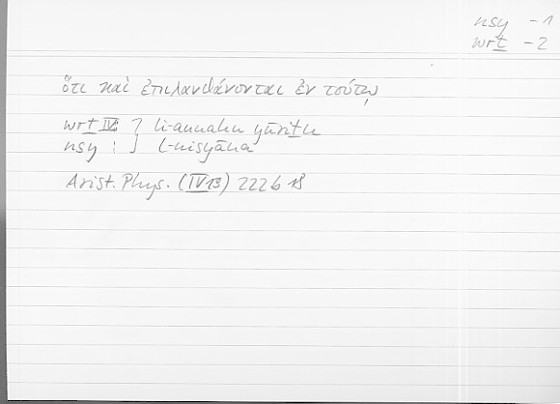 nsy – 1
wrṯ – 2
ὅτι καὶ ἐπιλανθάνονται ἐν τούτῳ
wrṯ IV: } li-annahu yūriṯu
nsy : } l-nisyāna
Arist. Phys. (IV 13) 222 b 18